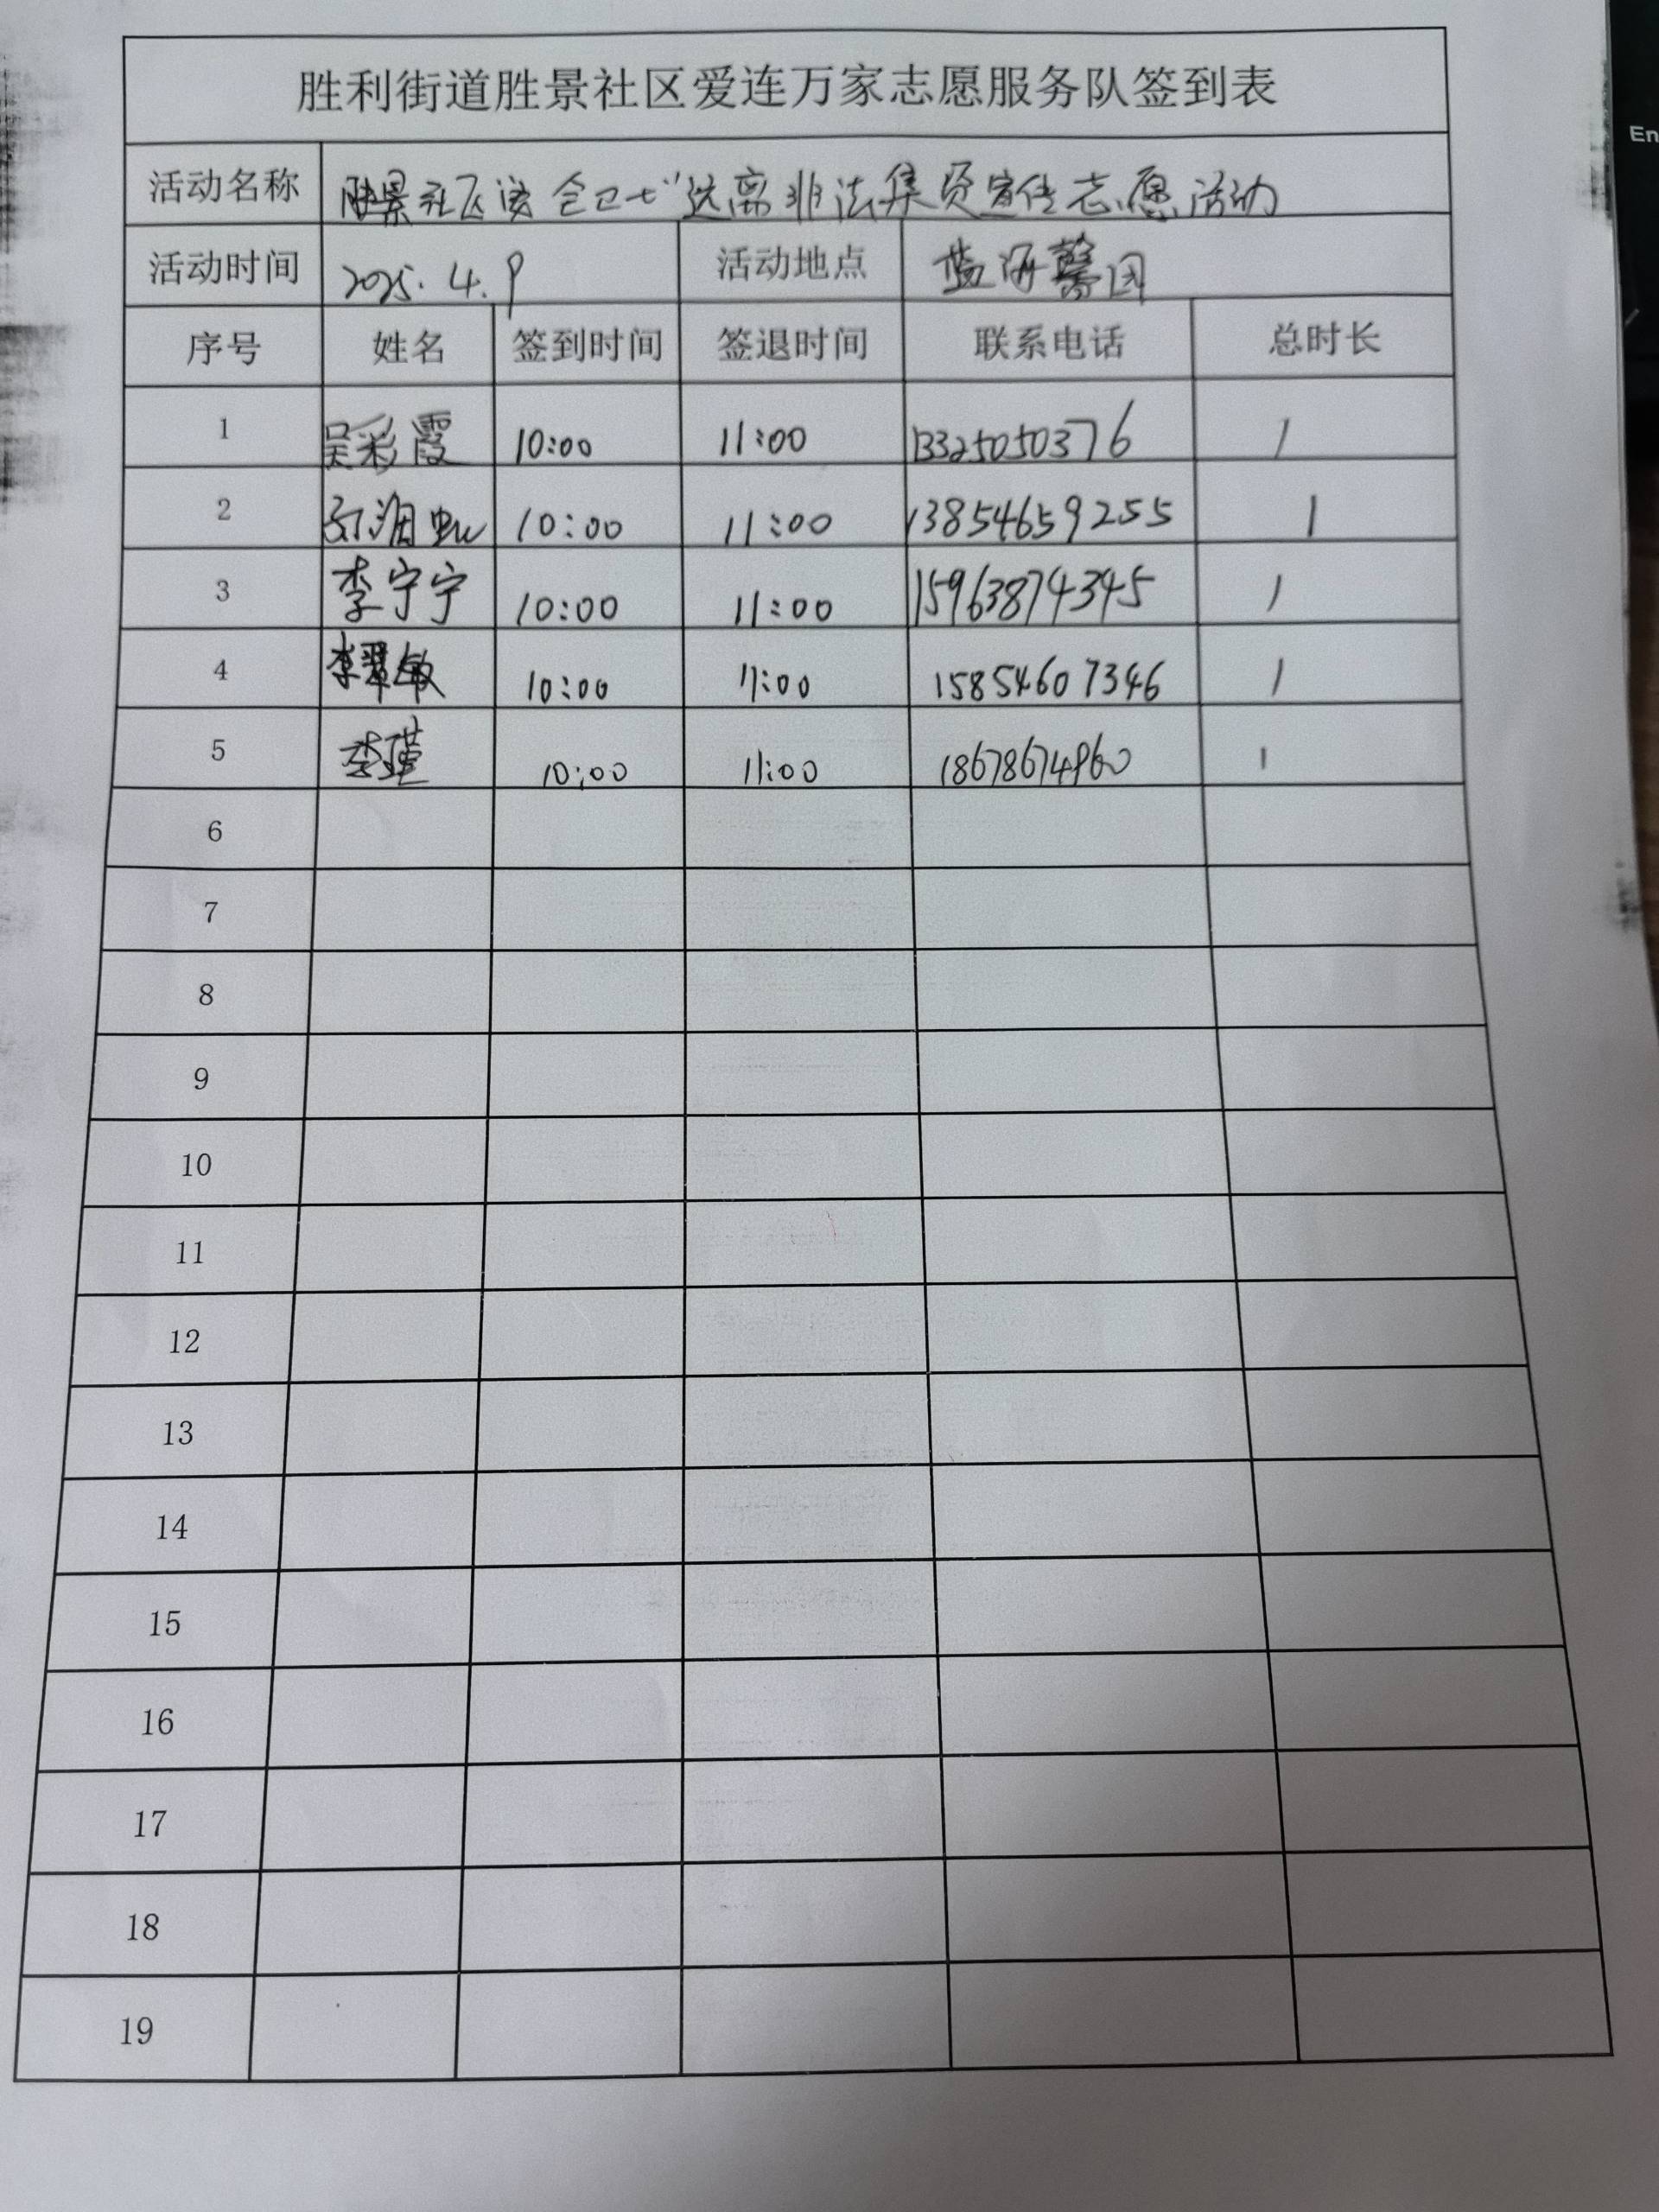 胜利街道胜景社区爱连万家志愿服务队签到表
活动名称 胜景社区 远离非法集资宣传志愿活动
活动时间 2025.4.9 活动地点 蓝海馨园
序号 姓名 签到时间 签退时间 联系电话 总时长
1 吴彩霞 10:00 11:00 13325050376 1
2 10:00 11:00 13854659255 1
3 李宁宁 10:00 11:00 15963874345 1
4 李翠敏 10:00 11:00 15854607346 1
5 李瑾 10:00 11:00 18678674960 1
6
7
8
9
10
11
12
13
14
15
16
17
18
19
En